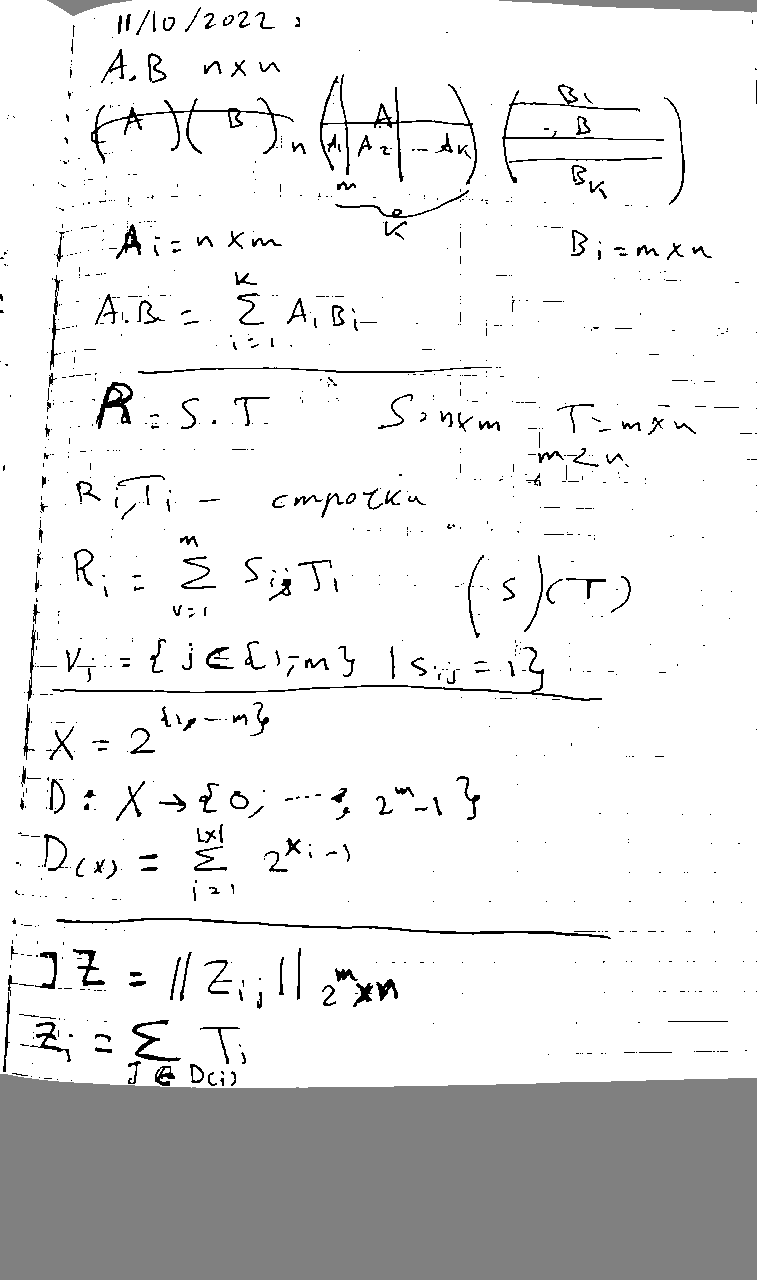 11/10/2022 :
A.B n×n
(A)(B) n (A₁ | A₂ | ... Aₖ) A (B₁ ... B Bₖ)
m
K
Aᵢ = n×m Bᵢ = m×n
A.B = Σ AᵢBᵢ K i=1
R = S.T S = n×m T = m×n
m≤n
Rᵢ,Tᵢ – строчки
Rᵢ = Σ Sᵢⱼ Tᵢ m v=1 (S)(T)
Vⱼ = {j ∈ {1,-m} | Sᵢⱼ = 1}
X = 2^{1,---m}
D : X → {0; ---, 2ᵐ-1}
D(x) = Σ 2^{xᵢ-1} |x| i=1
J Z = ||Zᵢⱼ|| 2ᵐ×n
Zᵢ = Σ Tᵢ J ∈ D(i)